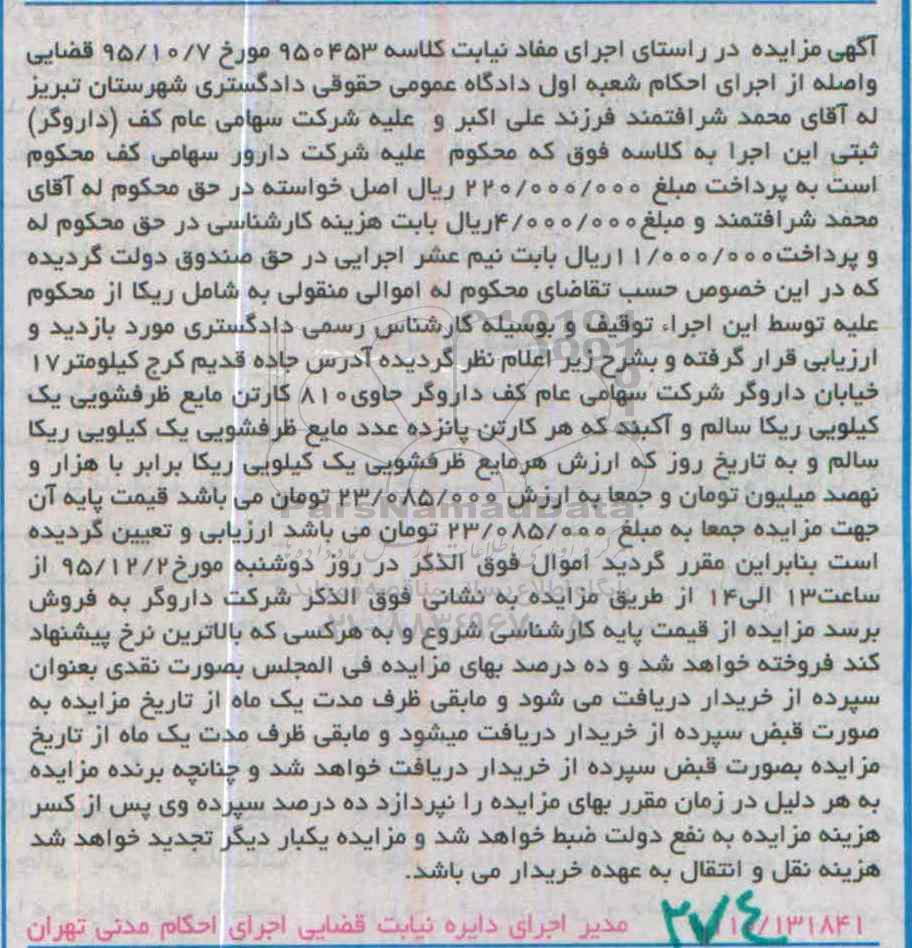 آگهی مزایده در راستای اجرای مفاد نیابت کلاسه ۹۵۰۴۵۳ مورخ ۹۵/۱۰/۷ قضایی
واصله از اجرای احکام شعبه اول دادگاه عمومی حقوقی دادگستری شهرستان تبریز
له آقای محمد شرافتمند فرزند علی اکبر و علیه شرکت سهامی عام کف (داروگر)
ثبتی این اجرا به کلاسه فوق که محکوم علیه شرکت دارور سهامی کف محکوم
است به پرداخت مبلغ ۲۲۰/۰۰۰/۰۰۰ ریال اصل خواسته در حق محکوم له آقای
محمد شرافتمند و مبلغ۴/۰۰۰/۰۰۰ریال بابت هزینه کارشناسی در حق محکوم له
و پرداخت۱۱/۰۰۰/۰۰۰ریال بابت نیم عشر اجرایی در حق صندوق دولت گردیده
که در این خصوص حسب تقاضای محکوم له اموالی منقولی به شامل ریکا از محکوم
علیه توسط این اجراء توقیف و بوسیله کارشناس رسمی دادگستری مورد بازدید و
ارزیابی قرار گرفته و بشرح زیر اعلام نظر گردیده آدرس جاده قدیم کرج کیلومتر۱۷
خیابان داروگر شرکت سهامی عام کف داروگر حاوی۸۱۰ کارتن مایع ظرفشویی یک
کیلویی ریکا سالم و آکبند که هر کارتن پانزده عدد مایع ظرفشویی یک کیلویی ریکا
سالم و به تاریخ روز که ارزش هرمایع ظرفشویی یک کیلویی ریکا برابر با هزار و
نهصد میلیون تومان و جمعا به ارزش ۲۳/۰۸۵/۰۰۰ تومان می باشد قیمت پایه آن
جهت مزایده جمعا به مبلغ ۲۳/۰۸۵/۰۰۰ تومان می باشد ارزیابی و تعیین گردیده
است بنابراین مقرر گردید اموال فوق الذکر در روز دوشنبه مورخ۹۵/۱۲/۲ از
ساعت۱۳ الی۱۴ از طریق مزایده به نشانی فوق الذکر شرکت داروگر به فروش
برسد مزایده از قیمت پایه کارشناسی شروع و به هرکسی که بالاترین نرخ پیشنهاد
کند فروخته خواهد شد و ده درصد بهای مزایده فی المجلس بصورت نقدی بعنوان
سپرده از خریدار دریافت می شود و مابقی ظرف مدت یک ماه از تاریخ مزایده به
صورت قبض سپرده از خریدار دریافت میشود و مابقی ظرف مدت یک ماه از تاریخ
مزایده بصورت قبض سپرده از خریدار دریافت خواهد شد و چنانچه برنده مزایده
به هر دلیل در زمان مقرر بهای مزایده را نپردازد ده درصد سپرده وی پس از کسر
هزینه مزایده به نفع دولت ضبط خواهد شد و مزایده یکبار دیگر تجدید خواهد شد
هزینه نقل و انتقال به عهده خریدار می باشد.
۱۳۱۸۴۱/ مدیر اجرای دایره نیابت قضایی اجرای احکام مدنی تهران
۲۷٤
ParsNamadData